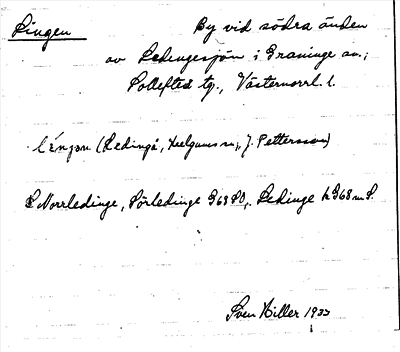 Lingen
By vid södra änden
av Ledingesjön i Graninge sn.;
Sollefteå tg., Västernorrl. l.
(Ledinge, J. Pettersson)
Norrledinge, Sörledinge G68 SO, Ledinge h G68 m S.
Sven Hiller 1933